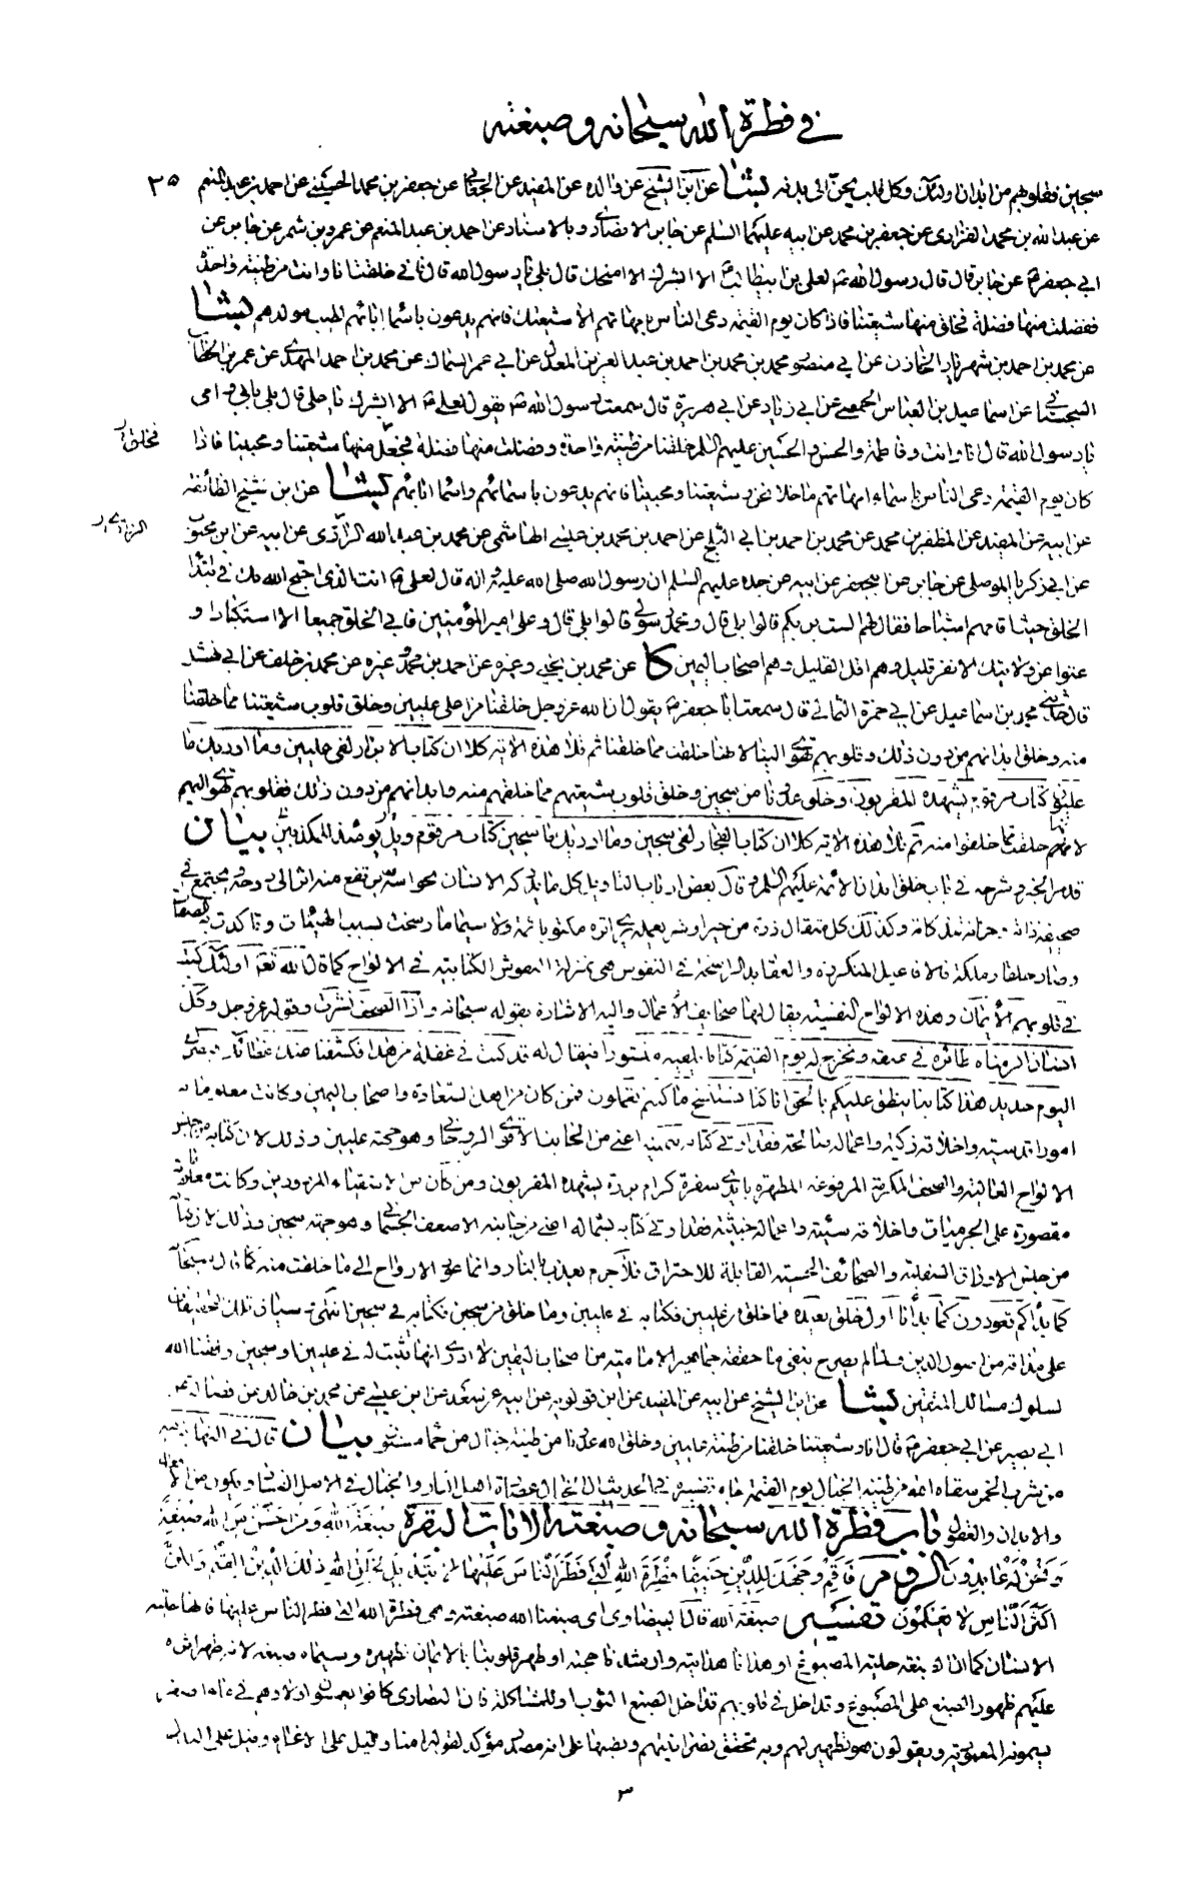 في فطرة الله سبحانه وصبغته
٣٥
سجين فقلوبهم من ابدان اولئك وكل قلب يحن الى بدنه بشا عن ابن الشيخ عن والده عن المفيد عن الجعابي عن جعفر بن محمد الحسيني عن احمد بن عبد المنعم
عن عبد الله بن محمد الفزاري عن جعفر بن محمد عن ابيه عليهما السلم عن جابر الانصاري وبالاسناد عن احمد بن عبد المنعم عن عمرو بن شمر عن جابر عن
ابي جعفر عن جابر قال قال رسول الله لعلي بن ابيطالب الا ابشرك الا امنحك قال بلى يا رسول الله قال فاني خلقت انا وانت من طينة واحدة
ففضلت منها فضلة فخلق منها شيعتنا فاذا كان يوم القيمة دعى الناس بامهاتهم الا شيعتك فانهم يدعون باسماء ابائهم لطيب مولدهم بشا
عن محمد بن احمد بن شهريار الخازن عن ابي منصور محمد بن محمد بن احمد بن عبد العزيز المعدل عن ابي عمر السماك عن محمد بن احمد المهدي عن عمر بن الخطاب
السجستاني عن اسماعيل بن العباس الحمصي عن ابي زياد عن ابي هريرة قال سمعت رسول الله يقول لعلي الا ابشرك يا علي قال بلى بابي وامي
يا رسول الله قال انا وانت وفاطمة والحسن والحسين عليهم السلم خلقنا من طينة واحدة وفضلت منها فضلة فجعل منها شيعتنا ومحبينا فاذا
كان يوم القيمة دعى الناس باسماء امهاتهم ما خلا نحن وشيعتنا ومحبينا فانهم يدعون باسمائهم واسماء ابائهم بشا عن ابن شيخ الطائفة
عن ابيه عن المفيد عن المظفر بن محمد عن محمد بن احمد بن ابي الثلج عن احمد بن محمد بن عيسى الهاشمي عن محمد بن عبد الله الزراري عن ابيه عن ابن محبوب
عن ابي زكريا الموصلي عن جابر عن ابيجعفر عن ابيه عن جده عليهم السلم ان رسول الله صلى الله عليه واله قال لعلي انت الذي احتج الله بك في ابتداء
الخلق حيث اقامهم اشباحا فقال لهم الست بربكم قالوا بلى قال ومحمد رسولي قالوا بلى قال وعلي امير المؤمنين فابى الخلق جميعا الا استكبارا و
عتوا عن ولايتك الا نفر قليل وهم اقل القليل وهم اصحاب اليمين كا عن محمد بن يحيى وغيره عن احمد بن محمد وغيره عن محمد بن خلف عن ابي نهشل
قال حدثني محمد بن اسماعيل عن ابي حمزة الثمالي قال سمعت ابا جعفر يقول ان الله عز وجل خلقنا من اعلى عليين وخلق قلوب شيعتنا مما خلقنا
منه وخلق ابدانهم من دون ذلك وقلوبهم تهوي الينا لانها خلقت مما خلقنا ثم تلا هذه الاية كلا ان كتاب الابرار لفي عليين وما ادريك ما
عليون كتاب مرقوم يشهده المقربون وخلق عدونا من سجين وخلق قلوب شيعتهم مما خلقهم منه وابدانهم من دون ذلك فقلوبهم تهوي اليهم
لانها خلقت مما خلقوا منه ثم تلا هذه الاية كلا ان كتاب الفجار لفي سجين وما ادريك ما سجين كتاب مرقوم ويل يومئذ للمكذبين بيان
قد مر الخبر وشرحه في باب خلق ابدان الائمة عليهم السلم وقال بعض ارباب التاويل كل ما يدركه الانسان بحواسه يرتفع منه اثر الى روحه ويجتمع في
صحيفة ذاته وخزانة مدركاته وكذلك كل مثقال ذرة من خير او شر يعمله يرى اثره مكتوبا ثمة ولا سيما ما رسخت بسبب الهيئات وتاكدت به الصفات
وصار خلقا وملكة فالافاعيل المتكررة والعقايد الراسخة في النفوس هي بمنزلة النقوش الكتابية في الالواح كما قال الله تعالى اولئك كتب
في قلوبهم الايمان وهذه الالواح النفسية يقال لها صحايف الاعمال واليه الاشارة بقوله سبحانه واذا الصحف نشرت وقوله عز وجل وكل
انسان الزمناه طائره في عنقه ونخرج له يوم القيمة كتابا يلقيه منشورا فيقال له قد كنت في غفلة من هذا فكشفنا عنك غطائك فبصرك
اليوم حديد هذا كتابنا ينطق عليكم بالحق انا كنا نستنسخ ما كنتم تعملون فمن كان من اهل السعادة واصحاب اليمين وكانت معلوماته
امورا قدسية واخلاقه زكية واعماله صالحة فقد اوتي كتابه بيمينه اعني من الجانب الاقوى الروحاني وهو جهة عليين وذلك لان كتابه من جنس
الالواح العالية والصحف المكرمة المرفوعة المطهرة بايدي سفرة كرام بررة يشهده المقربون ومن كان من الاشقياء المردودين وكانت معلوماته
مقصورة على الجرميات واخلاقه سيئة واعماله خبيثة فقد اوتي كتابه بشماله اعني من جانبه الاضعف الجسماني وهو جهة سجين وذلك لان كتابه
من جنس الاوراق السفلية والصحائف الحسية القابلة للاحتراق فلا جرم يعذب بالنار وانما عود الارواح الى ما خلقت منه كما قال سبحانه
كما بداكم تعودون كما بدأنا اول خلق نعيده فما خلق من عليين فكتابه في عليين وما خلق من سجين فكتابه في سجين انتهى
لسلوك مسالك المتقين بشا عن ابن الشيخ عن ابيه عن المفيد عن ابن قولويه عن ابيه عن سعد عن ابن عيسى عن محمد بن خالد عن فضالة عن
ابي بصير عن ابي جعفر قال انا وشيعتنا خلقنا من طينة عليين وخلق الله عدونا من طينة خبال من حمأ مسنون بيان قال في النهاية فيه
من شرب الخمر سقاه الله من طينة الخبال يوم القيمة جاء تفسيره في الحديث ان الخبال عصارة اهل النار والخبال في الاصل الفساد ويكون في الافعال
والابدان والعقول باب فطرة الله سبحانه وصبغته الايات البقرة صبغة الله ومن احسن من الله صبغة
ونحن له عابدون الروم فاقم وجهك للدين حنيفا فطرة الله التي فطر الناس عليها لا تبديل لخلق الله ذلك الدين القيم ولكن
اكثر الناس لا يعلمون تفسير صبغة الله قال البيضاوي اي صبغنا الله صبغته وهي فطرة الله التي فطر الناس عليها فانها حلية
الانسان كما ان الصبغة حلية المصبوغ او هدانا هدايته وارشدنا حجته او طهر قلوبنا بالايمان تطهيره وسماه صبغة لانه ظهر اثره
عليهم ظهور الصبغ على المصبوغ وتداخل في قلوبهم تداخل الصبغ الثوب او للمشاكلة فان النصارى كانوا يغمسون اولادهم في ماء اصفر
يسمونه المعمودية ويقولون هو تطهير لهم وبه تحقق نصرانيتهم ونصبها على انه مصدر مؤكد لقوله امنا وقيل على الاغراء وقيل على البدل
٣